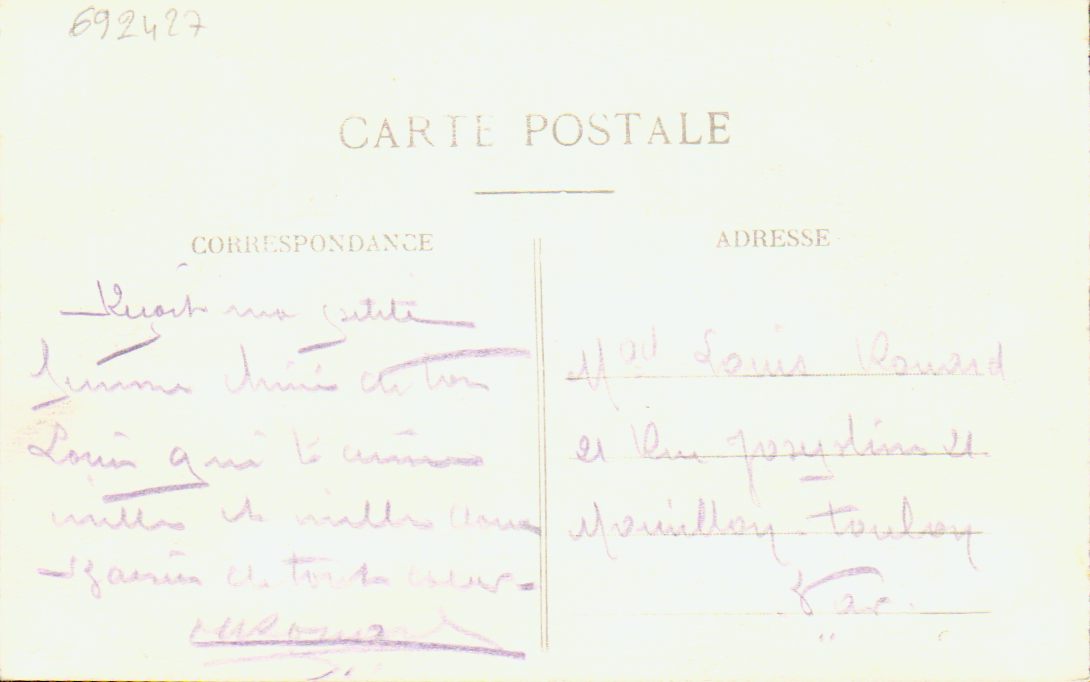 692427
CARTE POSTALE
CORRESPONDANCE
ADRESSE
Reçoit ma petite
femme chérie de ton
Louis qui t'aime
mille et mille doux
Baisers de tout coeur
Mad Louis Rouard
21 Rue 21
Mourillon - Toulon
Var.